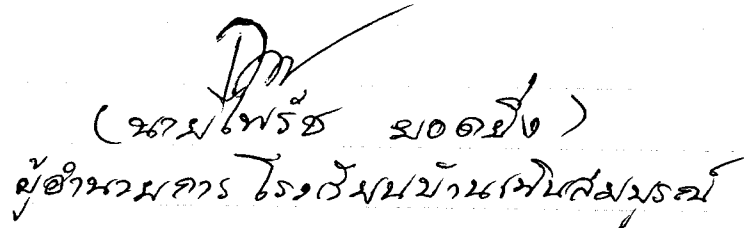 (นายไพรัช ยอดยิ่ง)
ผู้อำนวยการ โรงเรียนบ้านเนินสมบูรณ์